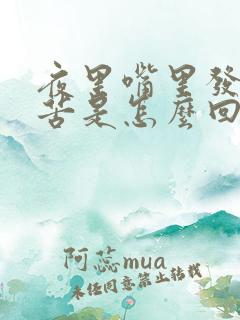 夜里嘴里發
苦是怎麼回
阿蕊mua
未经同意禁止转载